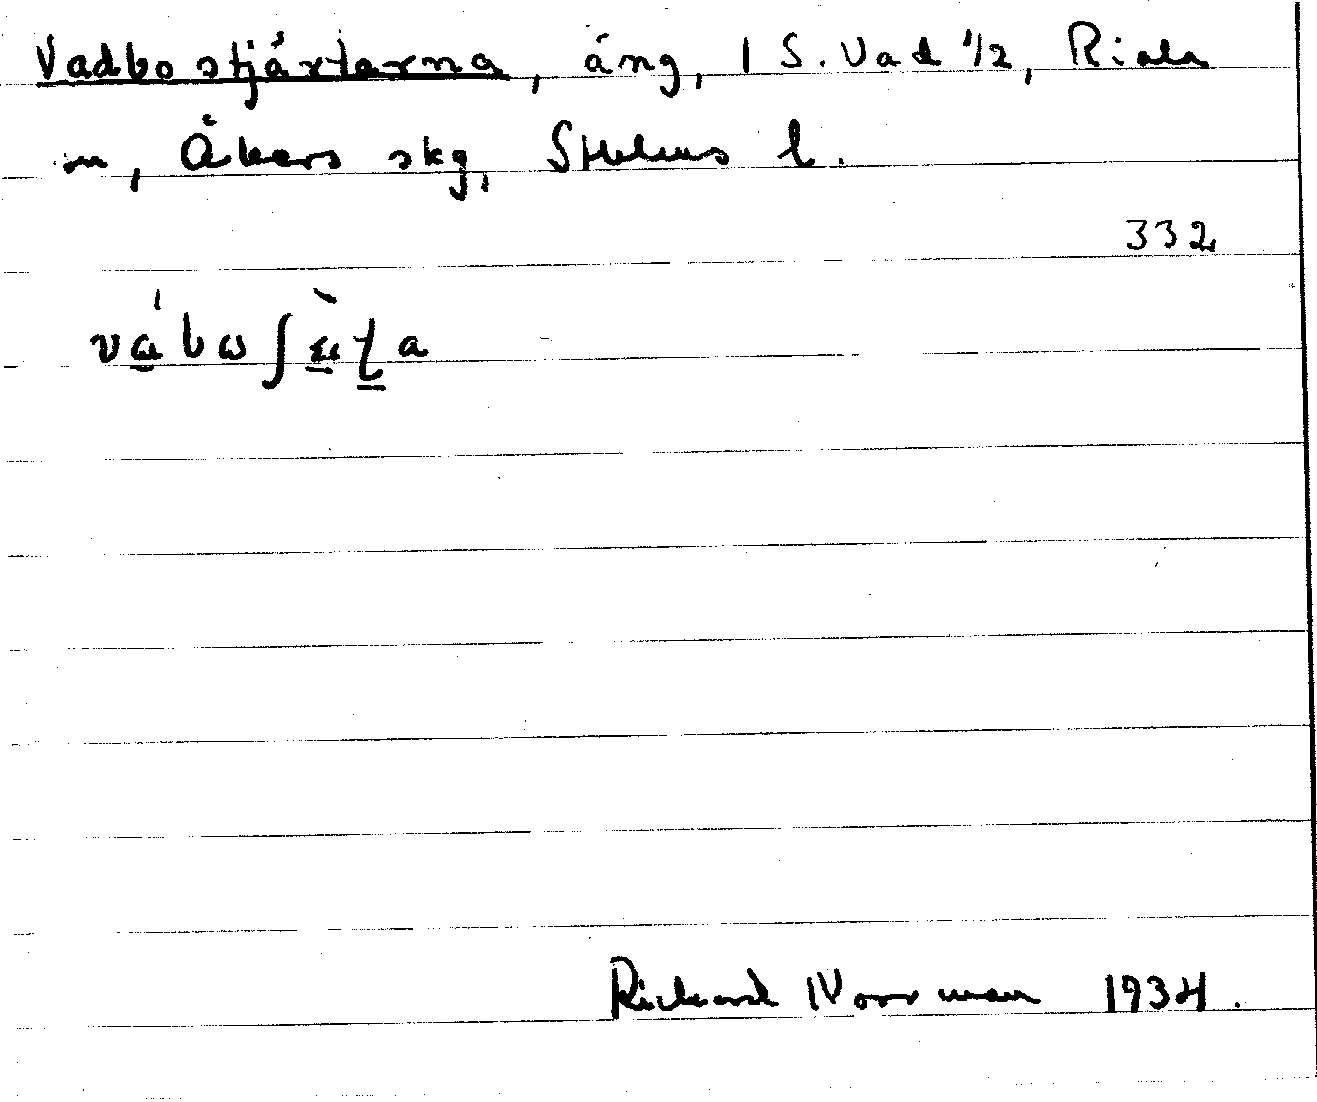 Vadbostjärtarna, äng, 1 S. Vad 1/2, Riala
sn, Åkers skg, Sthlms l.
332
Richard Norrman 1934.